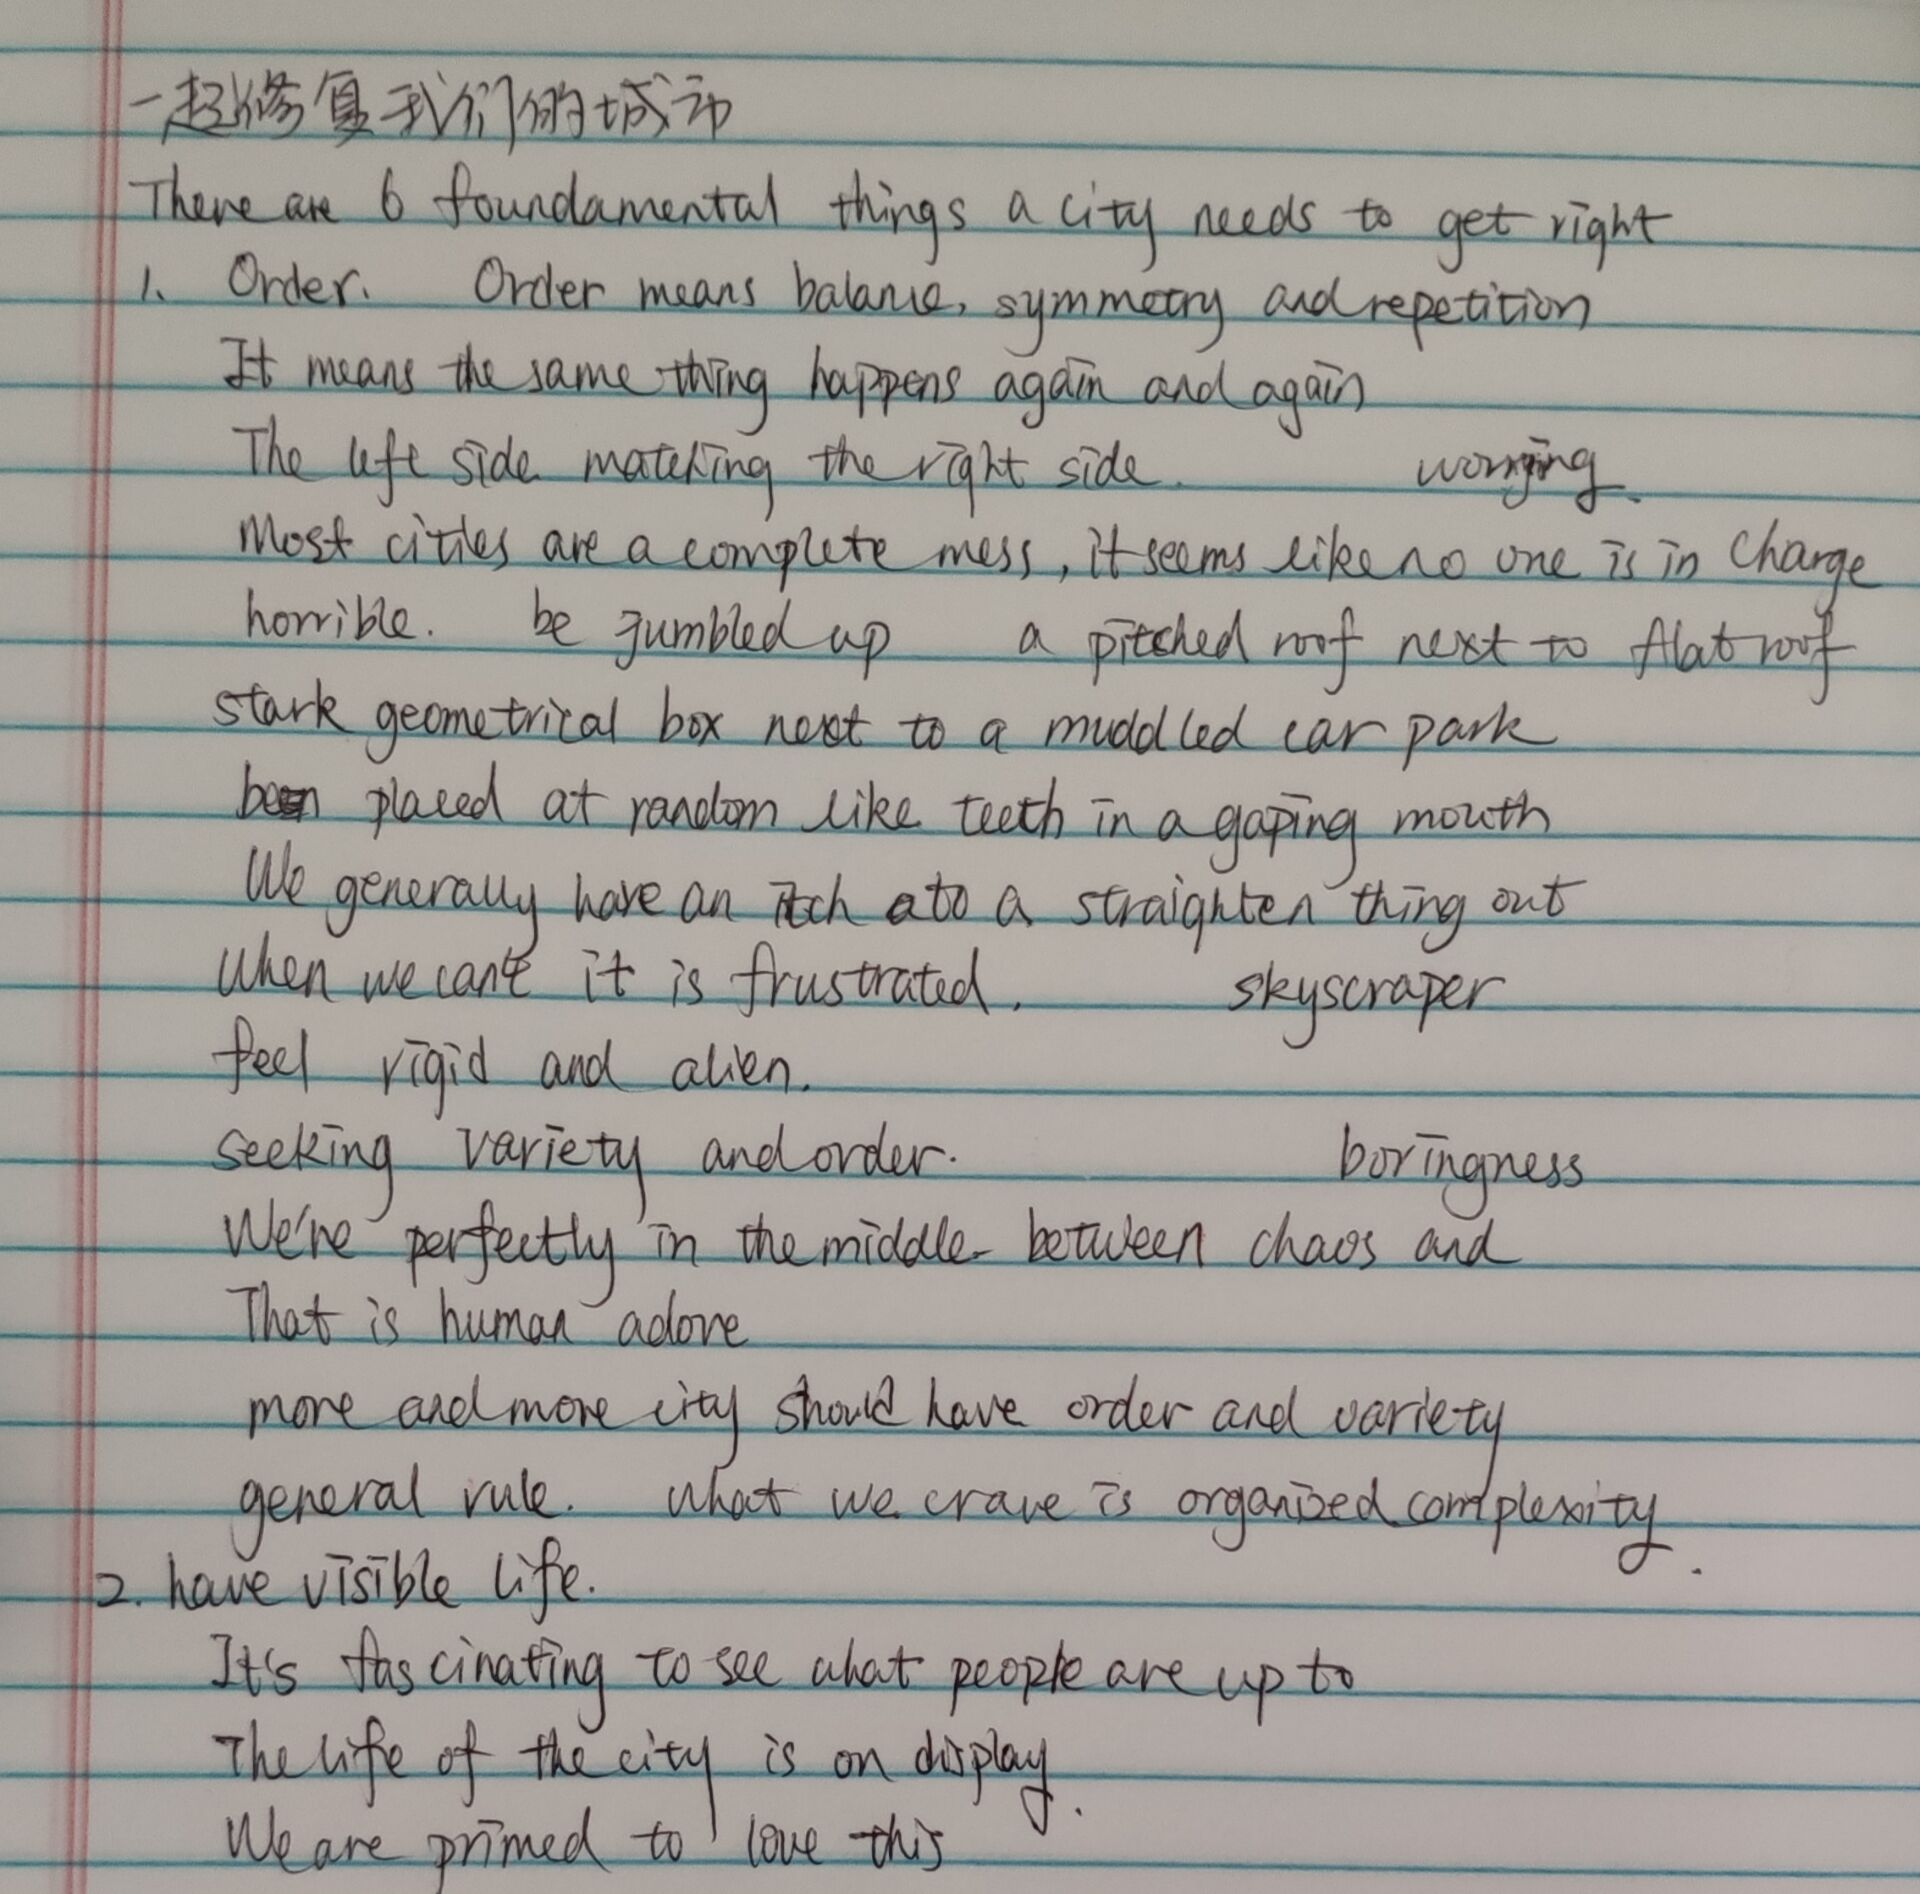 一起修复我们的城市
There are 6 foundamental things a city needs to get right
1. Order. Order means balance, symmetry and repetition
It means the same thing happens again and again
The left side matching the right side.
Most cities are a complete mess, it seems like no one is in charge
horrible. be jumbled up a pitched roof next to flat roof
stark geometrical box next to a muddled car park
been placed at random like teeth in a gaping mouth
We generally have an itch to a straighten thing out
When we can't it is frustrated. skyscraper
feel rigid and alien.
seeking variety and order. boringness
We're perfectly in the middle between chaos and
That is human adore
more and more city should have order and variety
general rule. what we crave is organized complexity.
2. have visible life.
It's fascinating to see what people are up to
The life of the city is on display.
We are primed to love this